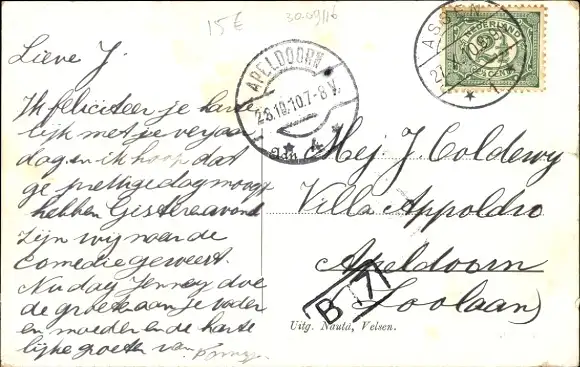 15€
30.09/16
Lieve J.
Ik feliciteer je harte
lijk met je verjaar
dag en ik hoop dat
ge prettige dag moogt
hebben Gisterenavond
zijn wij naar de
Comedie geweest.
Nu dag Jenney doe
de groeten aan je vader
en moeder en de harte
lijke groeten van
APELDOORN
28.10.10.7-8 V.
ASSEN
NEDERLAND
CENT
Aan
Mej. J Coldewy
Villa Appoldro
Apeldoorn
Loolaan
B 17
Uitg. Nauta, Velsen.